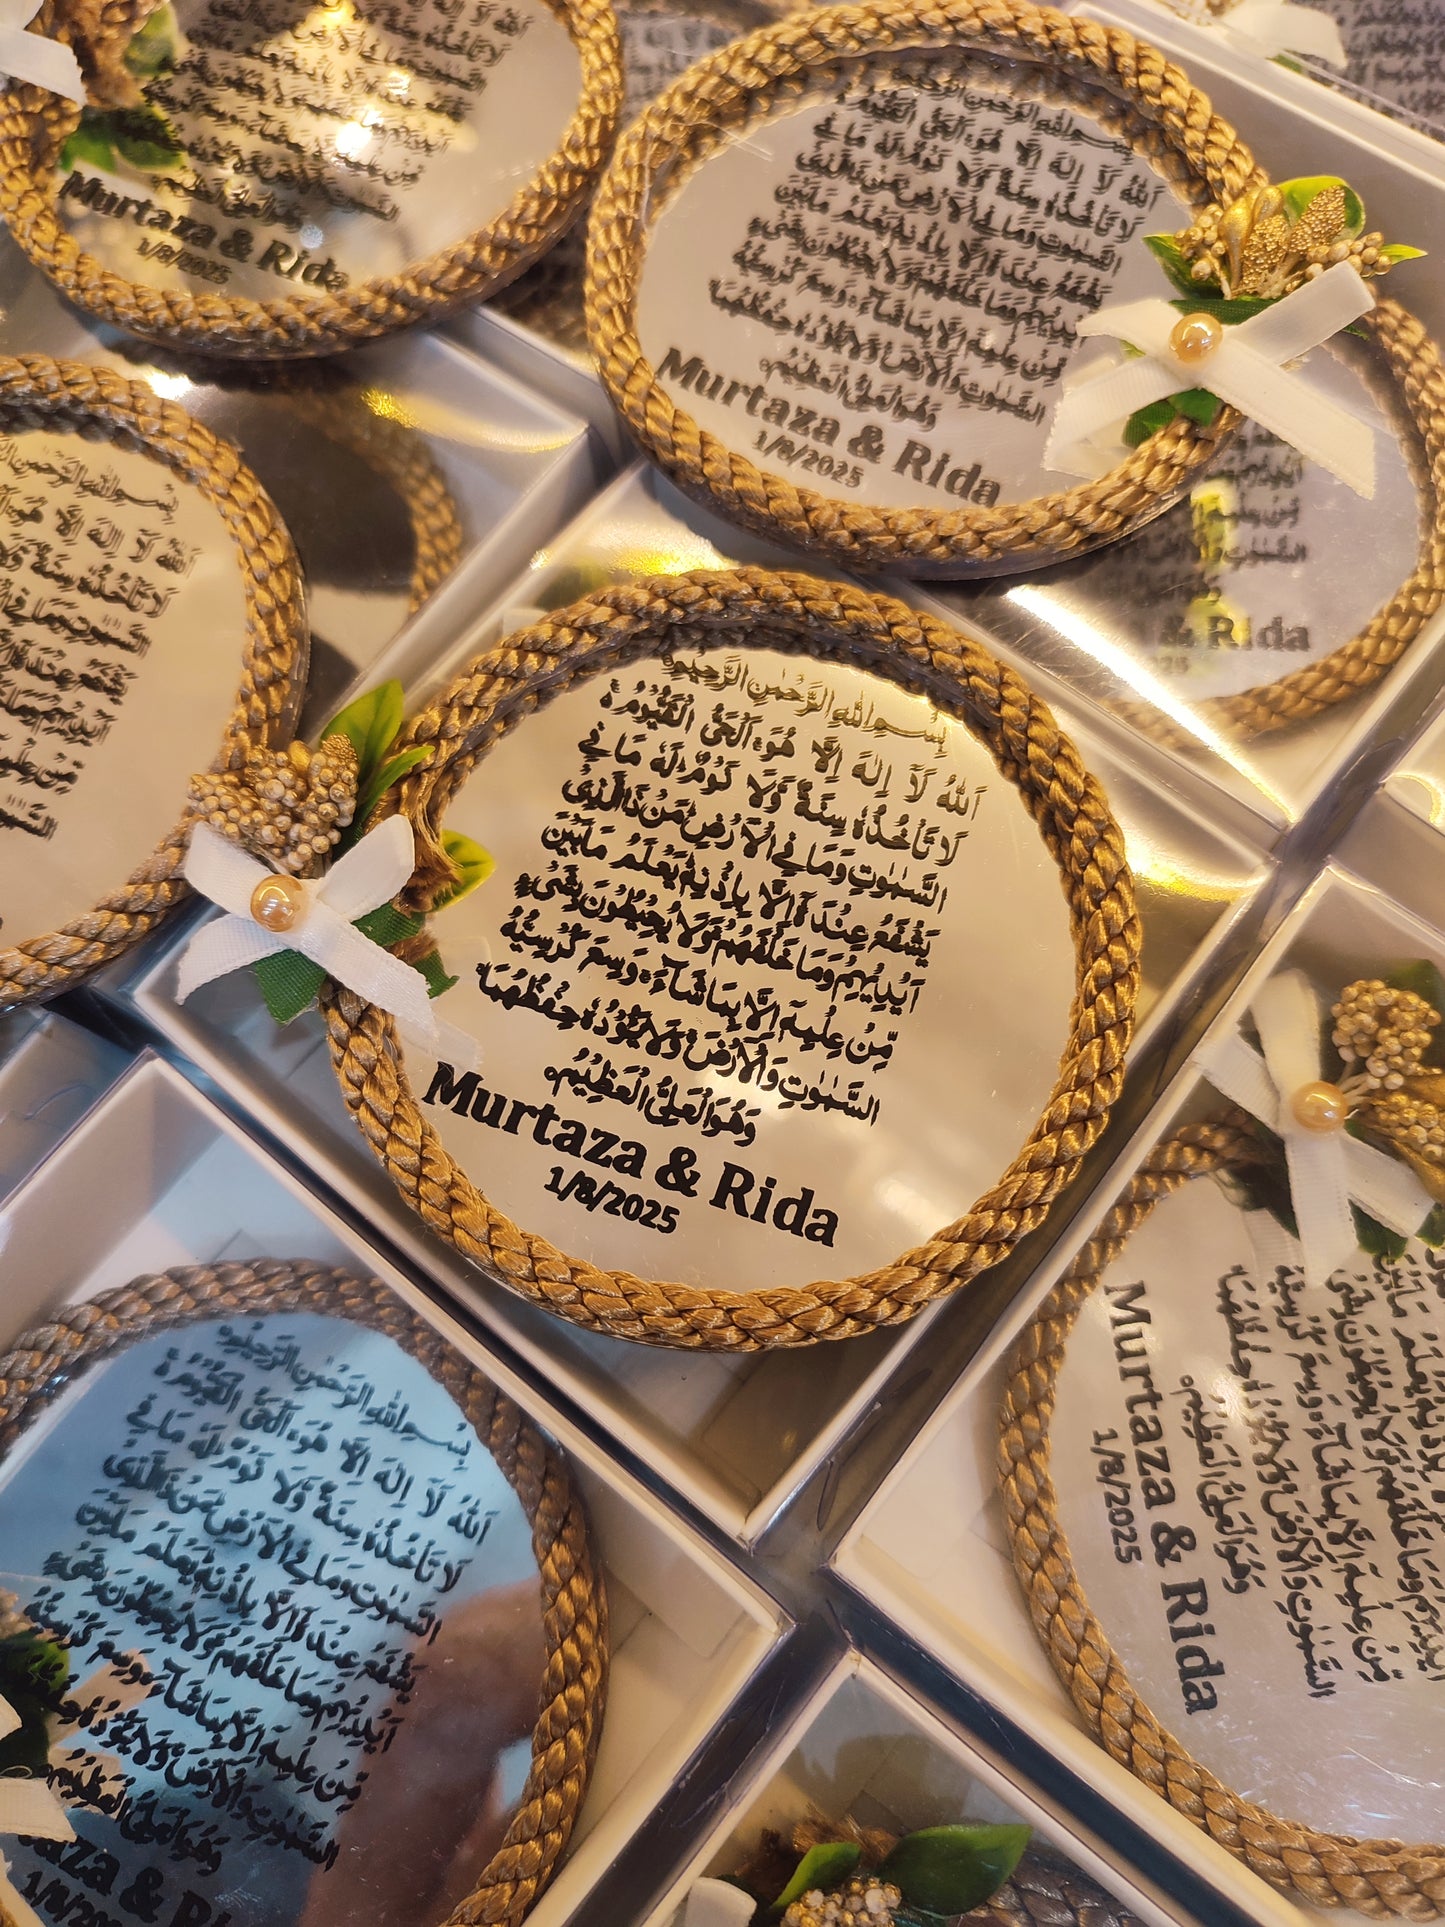 بِسْمِ اللهِ الرَّحْمٰنِ الرَّحِيْمِ
اَللهُ لَآ اِلٰهَ اِلَّا هُوَۚ اَلْحَىُّ الْقَيُّوْمُ ۚ
لَا تَاْخُذُهٗ سِنَةٌ وَّلَا نَوْمٌ ؕ لَهٗ مَا فِي
السَّمٰوٰتِ وَمَا فِي الْاَرْضِ ؕ مَنْ ذَا الَّذِىْ
يَشْفَعُ عِنْدَهٗٓ اِلَّا بِاِذْنِهٖ ؕ يَعْلَمُ مَا بَيْنَ
اَيْدِيْهِمْ وَمَا خَلْفَهُمْ ۚ وَلَا يُحِيْطُوْنَ بِشَىْءٍ
مِّنْ عِلْمِهٖٓ اِلَّا بِمَا شَآءَ ۚ وَسِعَ كُرْسِيُّهُ
السَّمٰوٰتِ وَالْاَرْضَ ۚ وَلَا يَئُوْدُهٗ حِفْظُهُمَا ۚ
وَهُوَ الْعَلِىُّ الْعَظِيْمُ
Murtaza & Rida
1/8/2025